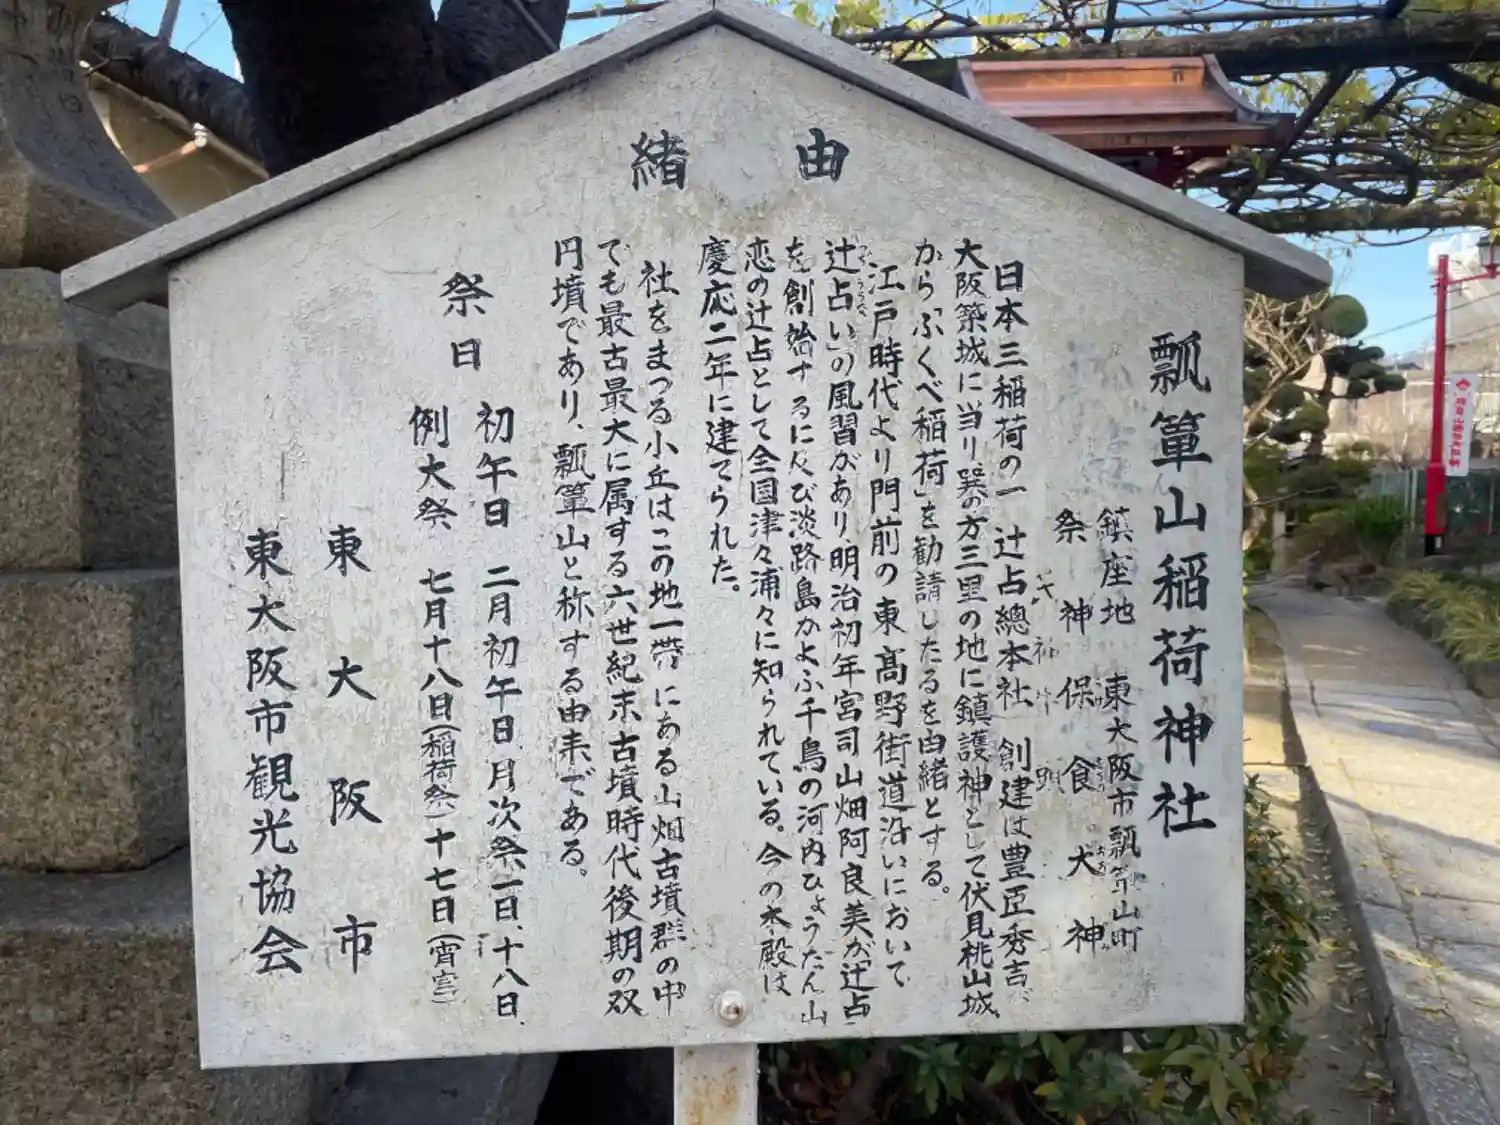 由緒
瓢箪山稲荷神社
鎮座地 東大阪市瓢箪山町
祭神 保食大神
日本三稲荷の一 辻占總本社 創建は豊臣秀吉が
大阪築城に当り巽の方三里の地に鎮護神として伏見桃山城
から「ふくべ稲荷」を勧請したるを由緒とする。
江戸時代より門前の東高野街道沿いにおいて
辻占い」の風習があり明治初年宮司山畑阿良美が「辻占」
を創始するに及び淡路島かよふ千鳥の河内ひょうたん山
恋の辻占として全国津々浦々に知られている。今の本殿は
慶応二年に建てられた。
社をまつる小丘はこの地一帯にある山畑古墳群の中
でも最古最大に属する六世紀末古墳時代後期の双
円墳であり、瓢箪山と称する由来である。
祭日
初午日 二月初午日、月次祭一日、十八日、
例大祭 七月十八日(稲荷祭)十七日(宵宮)
東大阪市
東大阪市観光協会